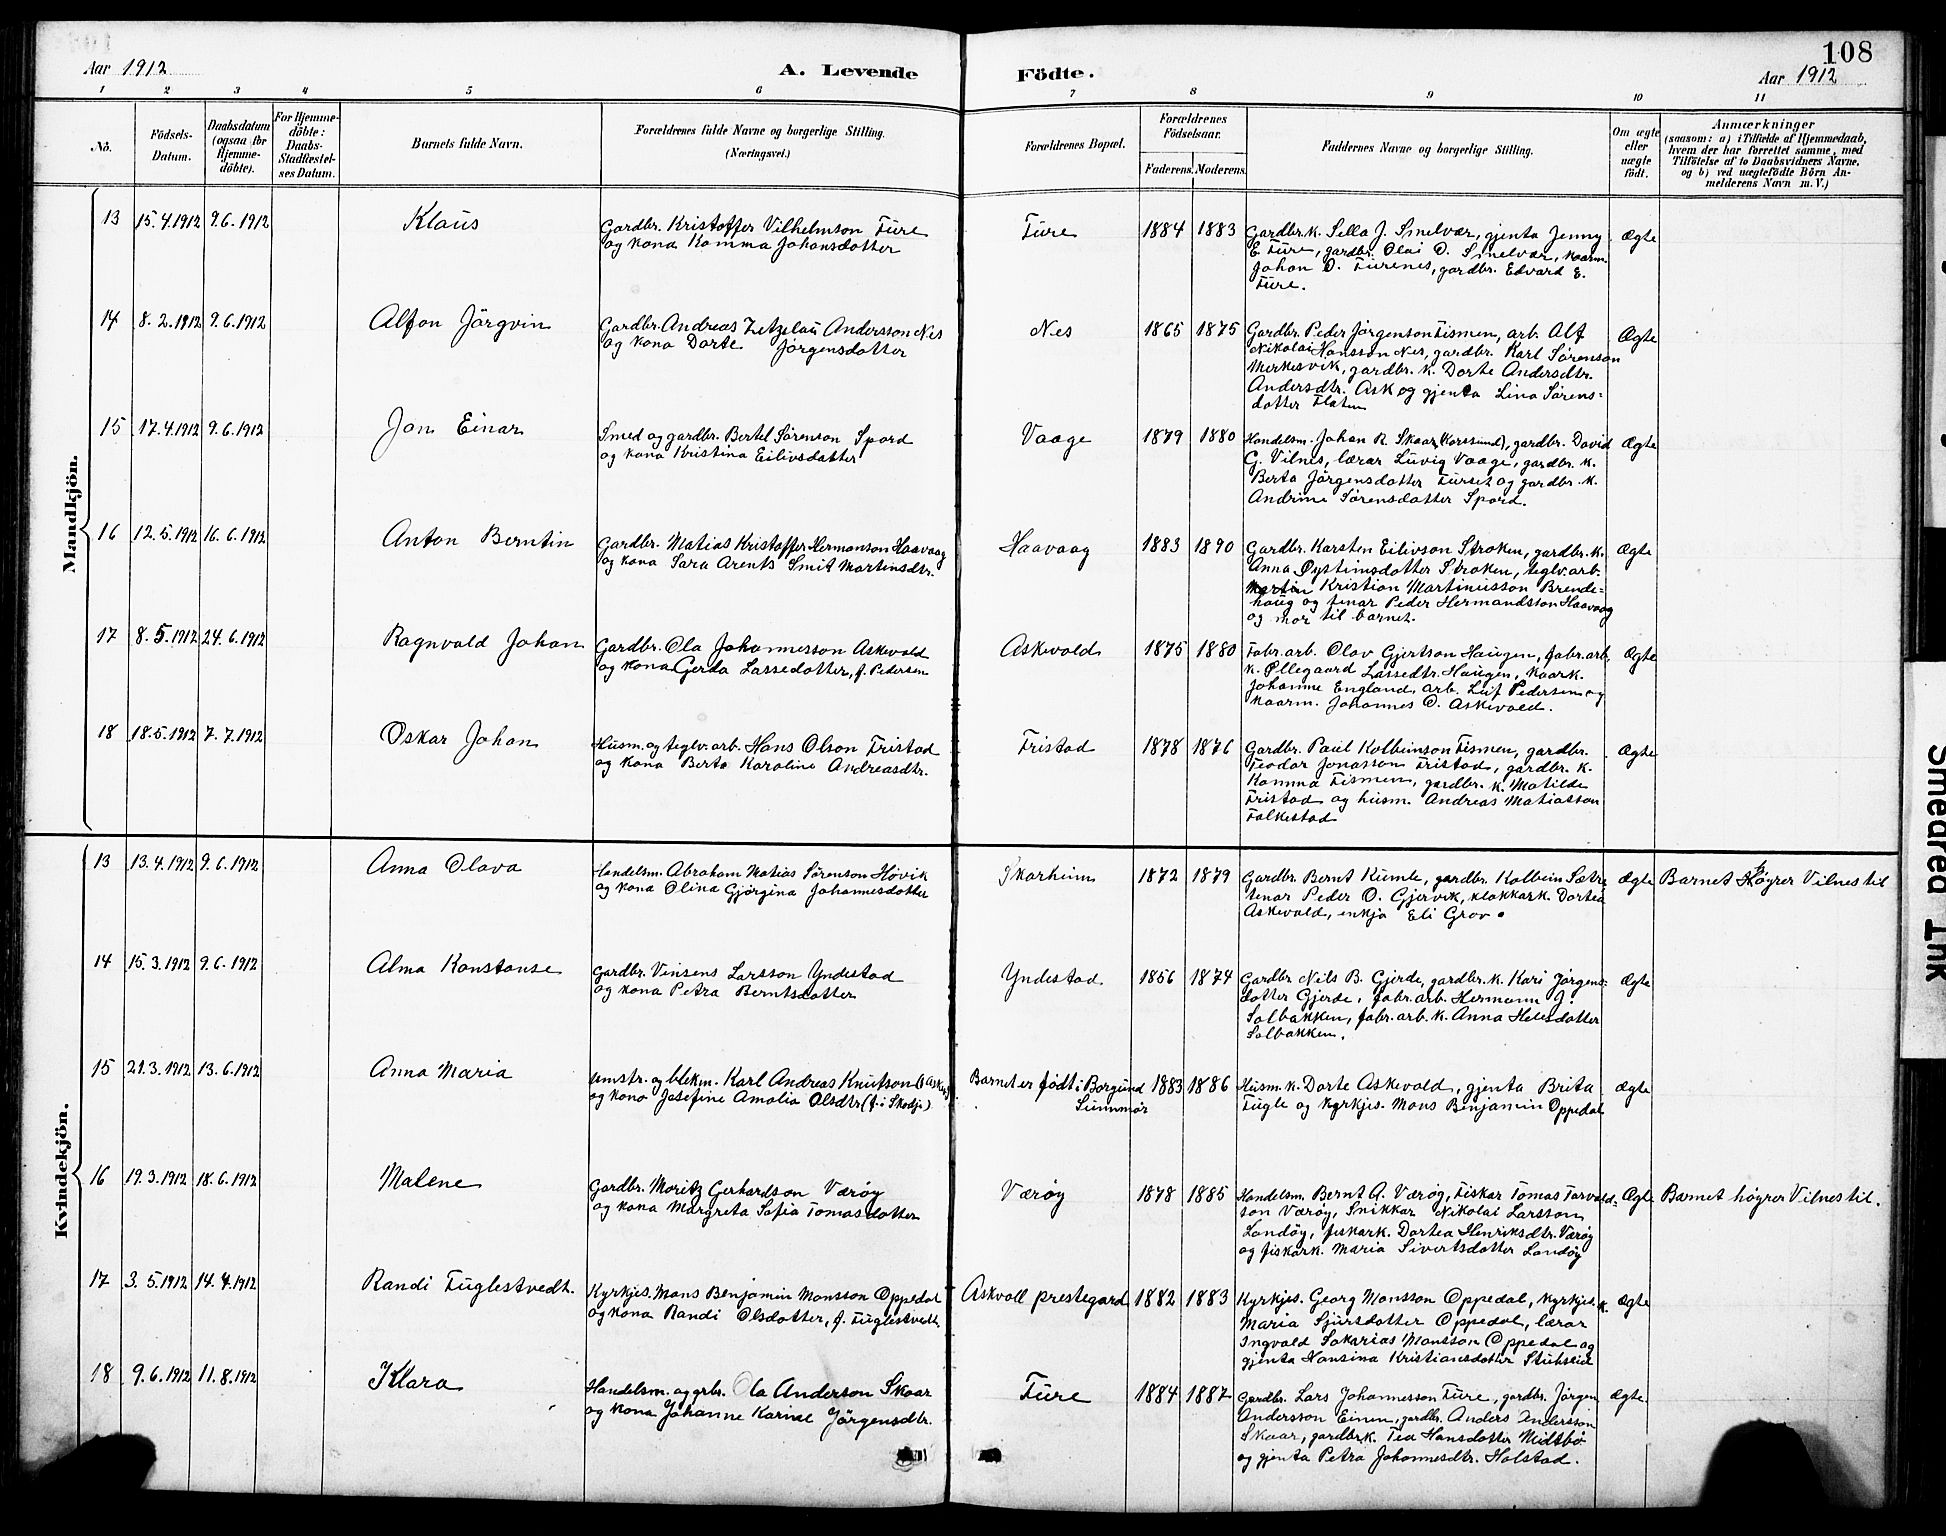 108
Aar 1912
A. Levende
Födte.
Aar 1912
1 2 3 4 5 6 7 8 9 10 11
No.
Födsels-
Datum.
Daabsdatum
(ogsaa for
Hjemme-
döbte).
For Hjemme-
döbte:
Daabs-
Stadfæstel-
ses Datum.
Barnets fulde Navn.
Forældrenes fulde Navne og borgerlige Stilling.
(Næringsvei.)
Forældrenes Bopæl.
Forældrenes
Födselsaar.
Faderens. Moderens.
Faddernes Navne og borgerlige Stilling.
Om ægte
eller
uægte
födt.
Anmærkninger
(saasom: a) i Tilfælde af Hjemmedaab,
hvem der har forrettet samme, med
Tilföielse af to Daabsvidners Navne,
og b) ved uægtefödte Börn An-
melderens Navn m. V.)
Mandkjön.
13 15.4.1912 9.6.1912 Klaus
Gardbr. Kristoffer Vilhelmson Fure
og kona Kamma Johansdotter
Fure 1884 1883
Gardbr.k. Sella J. Smelvær, gjenta Jenny
E. Fure, gardbr. Olai O. Smelvær, kaarm.
Johan D. Furenes, gardbr. Edvard E.
Fure.
Ægte
14 8.2.1912 9.6.1912 Alfon Jörgvin
Gardbr. Andreas Zetzelau Andersson Nes
og kona Dorte Jørgensdotter
Nes 1865 1875
Gardbr. Peder Jørgenson Fismen, arb. Alf
Nikolai Hansson Nes, gardbr. Karl Sørenson
Merkesvik, gardbr. k. Dorte Andersdtr.
Andersdtr. Ask og gjenta Lina Sørens-
dotter Flaten
Ægte
15 17.4.1912 9.6.1912 Jon Einar
Smed og gardbr. Bertel Sørenson Spord
og kona Kristina Eilivsdatter
Vaage 1879 1880
Handelsm. Johan R. Skaar (Korssund), gardbr. David
G. Vilnes, lærar Luvig Vaage, gardbr. k.
Berta Jørgensdotter Furset og gardbr. k.
Andrine Sørensdotter Spord.
Ægte
16 12.5.1912 16.6.1912 Anton Berntin
Gardbr. Matias Kristoffer Hermanson Haavaag
og kona Sara Arents Smit Martinsdtr.
Haavaag 1883 1890
Gardbr. Karsten Eilivson Stroken, gardbr. k.
Anna Øysteinsdotter Stroken, teglv.arb.
Martin Kristian Martinusson Brende-
haug og tenar Peder Hermandsson Haavaag
og mor til barnet.
Ægte
17 8.5.1912 24.6.1912 Ragnvald Johan
Gardbr. Ola Johannesson Askevold
og kona Gerda Lassedotter, f. Pedersen
Askevold 1875 1880
Fabr.arb. Olav Gjertson Haugen, fabr.arb.
k. Øllegaard Lassedtr. Haugen, kaark.
Johanne England, arb. Leif Pedersen og
kaarm. Johannes O. Askevold.
Ægte
18 18.5.1912 7.7.1912 Oskar Johan
Husm. og teglv.arb. Hans Olson Fristad
og kona Berta Karoline Andreasdtr.
Fristad 1878 1876
Gardbr. Paul Kolbeinson Fismen, gardbr.
Teodor Jonasson Fristad, gardbr. k.
Kamma Fismen, gardbr. k. Matilde
Fristad og husm. Andreas Matiasson
Falkestad
Ægte
Kvindekjön.
13 13.4.1912 9.6.1912 Anna Olava
Handelsm. Abraham Matias Sørenson Høvik
og kona Olina Gjørgina Johannesdotter
Skorheim 1872 1879
Gardbr. Bernt Kumle, gardbr. Kolbein Sætre
tenar Peder O. Gjervik, klokkark. Dortea
Askevold, enkja Eli Grov.
Ægte Barnet høyrer Vilnes til
14 15.3.1912 9.6.1912 Alma Konstanse
Gardbr. Vinsens Larsson Yndestad
og kona Petra Berntsdotter
Yndestad 1856 1874
Gardbr. Nils B. Gjerde, gardbr. k. Kari Jørgens-
dotter Gjerde, fabr.arb. Hermann J.
Solbakken, fabr.arb. k. Anna Helesdotter
Solbakken.
Ægte
15 21.3.1912 13.6.1912 Anna Maria
og blekm. Karl Andreas Knutson
og kona Josefine Amalia Olsdtr (f. i Skodje)
Barnet er født i Borgund
Sunnmør
1883 1886
Husm. k. Dorte Askevold, gjenta Brita
Fugle og kyrkjes. Mons Benjamin Oppedal
Ægte
16 19.3.1912 18.6.1912 Malene
Gardbr. Moritz Gerhardson Værøy
og kona Margreta Sofia Tomasdotter
Værøy 1878 1885
Handelsm. Bernt A. Værøy, Fiskar Tomas Torvald-
son Værøy, Snikkar Nikolai Larsson
Landøy, fiskark. Dortea Henriksdtr. Værøy
og fiskark. Maria Sivertsdotter Landøy
Ægte Barnet høyrer Vilnes til.
17 3.5.1912 14.4.1912 Randi Fuglestvedt.
Kyrkjes. Mons Benjamin Monsson Oppedal
og kona Randi Olsdotter, f. Fuglestvedt
Askvoll prestegard 1882 1883
Kyrkjes. Georg Monsson Oppedal, kyrkjes. k.
Maria Sjursdotter Oppedal, lærar
Ingvald Sakarias Monsson Oppedal og
gjenta Hansina Kristiansdotter
Ægte
18 9.6.1912 11.8.1912 Klara
Handelsm. og grbr. Ola Anderson Skaar
og kona Johanne Karine Jörgensdtr.
Fure 1884 1887
Gardbr. Lars Johannesson Fure, gardbr. Jørgen
Andersson Einen, gardbr. Anders Andersson
Skaar, gardbr.k. Tea Hansdotter Midtbø
og gjenta Petra Johannesdtr. Holstad.
Ægte.
Smeared Ink